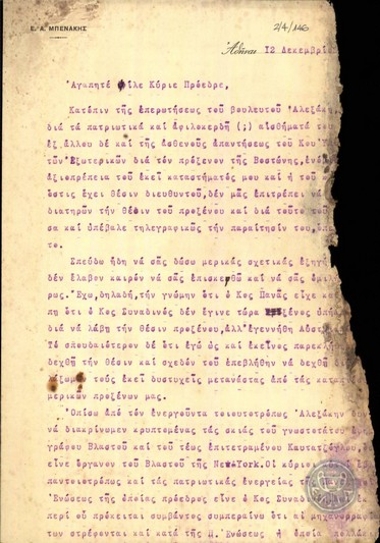 Ε. Α. ΜΠΕΝΑΚΗΣ
2/4/146
Ἀθῆναι 12 Δεκεμβρίο
Ἀγαπητέ φίλε Κύριε Πρόεδρε,
Κατόπιν τῆς ἐπερωτήσεως τοῦ βουλευτοῦ Ἀλεξάκη
διά τά πατριωτικά καί ἀφιλοκερδῆ (;) αἰσθήματά του
ἐξ ἄλλου δέ καί τῆς ἀσθενοῦς ἀπαντήσεως τοῦ Κου Ὑπ
τῶν Ἐξωτερικῶν διά τόν πρόξενον τῆς Βοστώνης, ἐνό
ἀξιοπρέπεια τοῦ ἐκεῖ καταστήματός μου καί ἡ τοῦ
ὅστις ἔχει θέσιν διευθυντοῦ, δέν μᾶς ἐπιτρέπει νά
διατηρῶν τήν θέσιν τοῦ προξένου καί διά τοῦτο τοῦ
σα καί ὑπέβαλε τηλεγραφικῶς τήν παραίτησίν του, ὑπ
το.
Σπεύδω ἤδη νά σᾶς δώσω μερικάς σχετικάς ἐξηγή
δέν ἔλαβον καιρόν νά σᾶς ἐπισκεφθῶ καί νά σᾶς ὁμιλ
ρως. Ἔχω, δηλαδή, τήν γνώμην ὅτι ὁ Κος Πανᾶς εἶχε κα
πῃ ὅτι ὁ Κος Συναδινός δέν ἔγινε τώρα ὑπήκ
διά νά λάβῃ τήν θέσιν προξένου, ἀλλ' ἐγεννήθη
Τό σπουδαιότερον δέ ὅτι ἐγώ ὡς καί ἐκεῖνος παρεκλή
δεχθῆ τήν θέσιν καί σχεδόν τοῦ ἐπεβλήθην νά δεχθῆ δι
ζωμ τούς ἐκεῖ δυστυχεῖς μετανάστας ἀπό τάς κατα
μερικῶν προξένων μας.
Ὀπίσω ἀπό τόν ἐνεργοῦντα τοιουτοτρόπως Ἀλεξάκην δυν
νά διακρίνωμεν κρυπτομένας τάς σκιάς τοῦ γνωστοτάτου
γράφου Βλαστοῦ καί τοῦ τέως ἐπιτετραμένου Καυτατζόγλου,
εἶνε ὄργανον τοῦ Βλαστοῦ τῆς New York. Οἱ κύριοι
παντοιοτρόπως καί τάς πατριωτικάς ἐνεργείας τῆς
Ἑνώσεως τῆς ὁποίας πρόεδρος εἶνε ὁ Κος Συναδι
περί οὗ πρόκειται συμβάντος συμπεραίνω ὅτι αἱ μηχανορραφ
των στρέφονται καί κατά τῆς Π. Ἑνώσεως ἡ ὁποία πολλάς